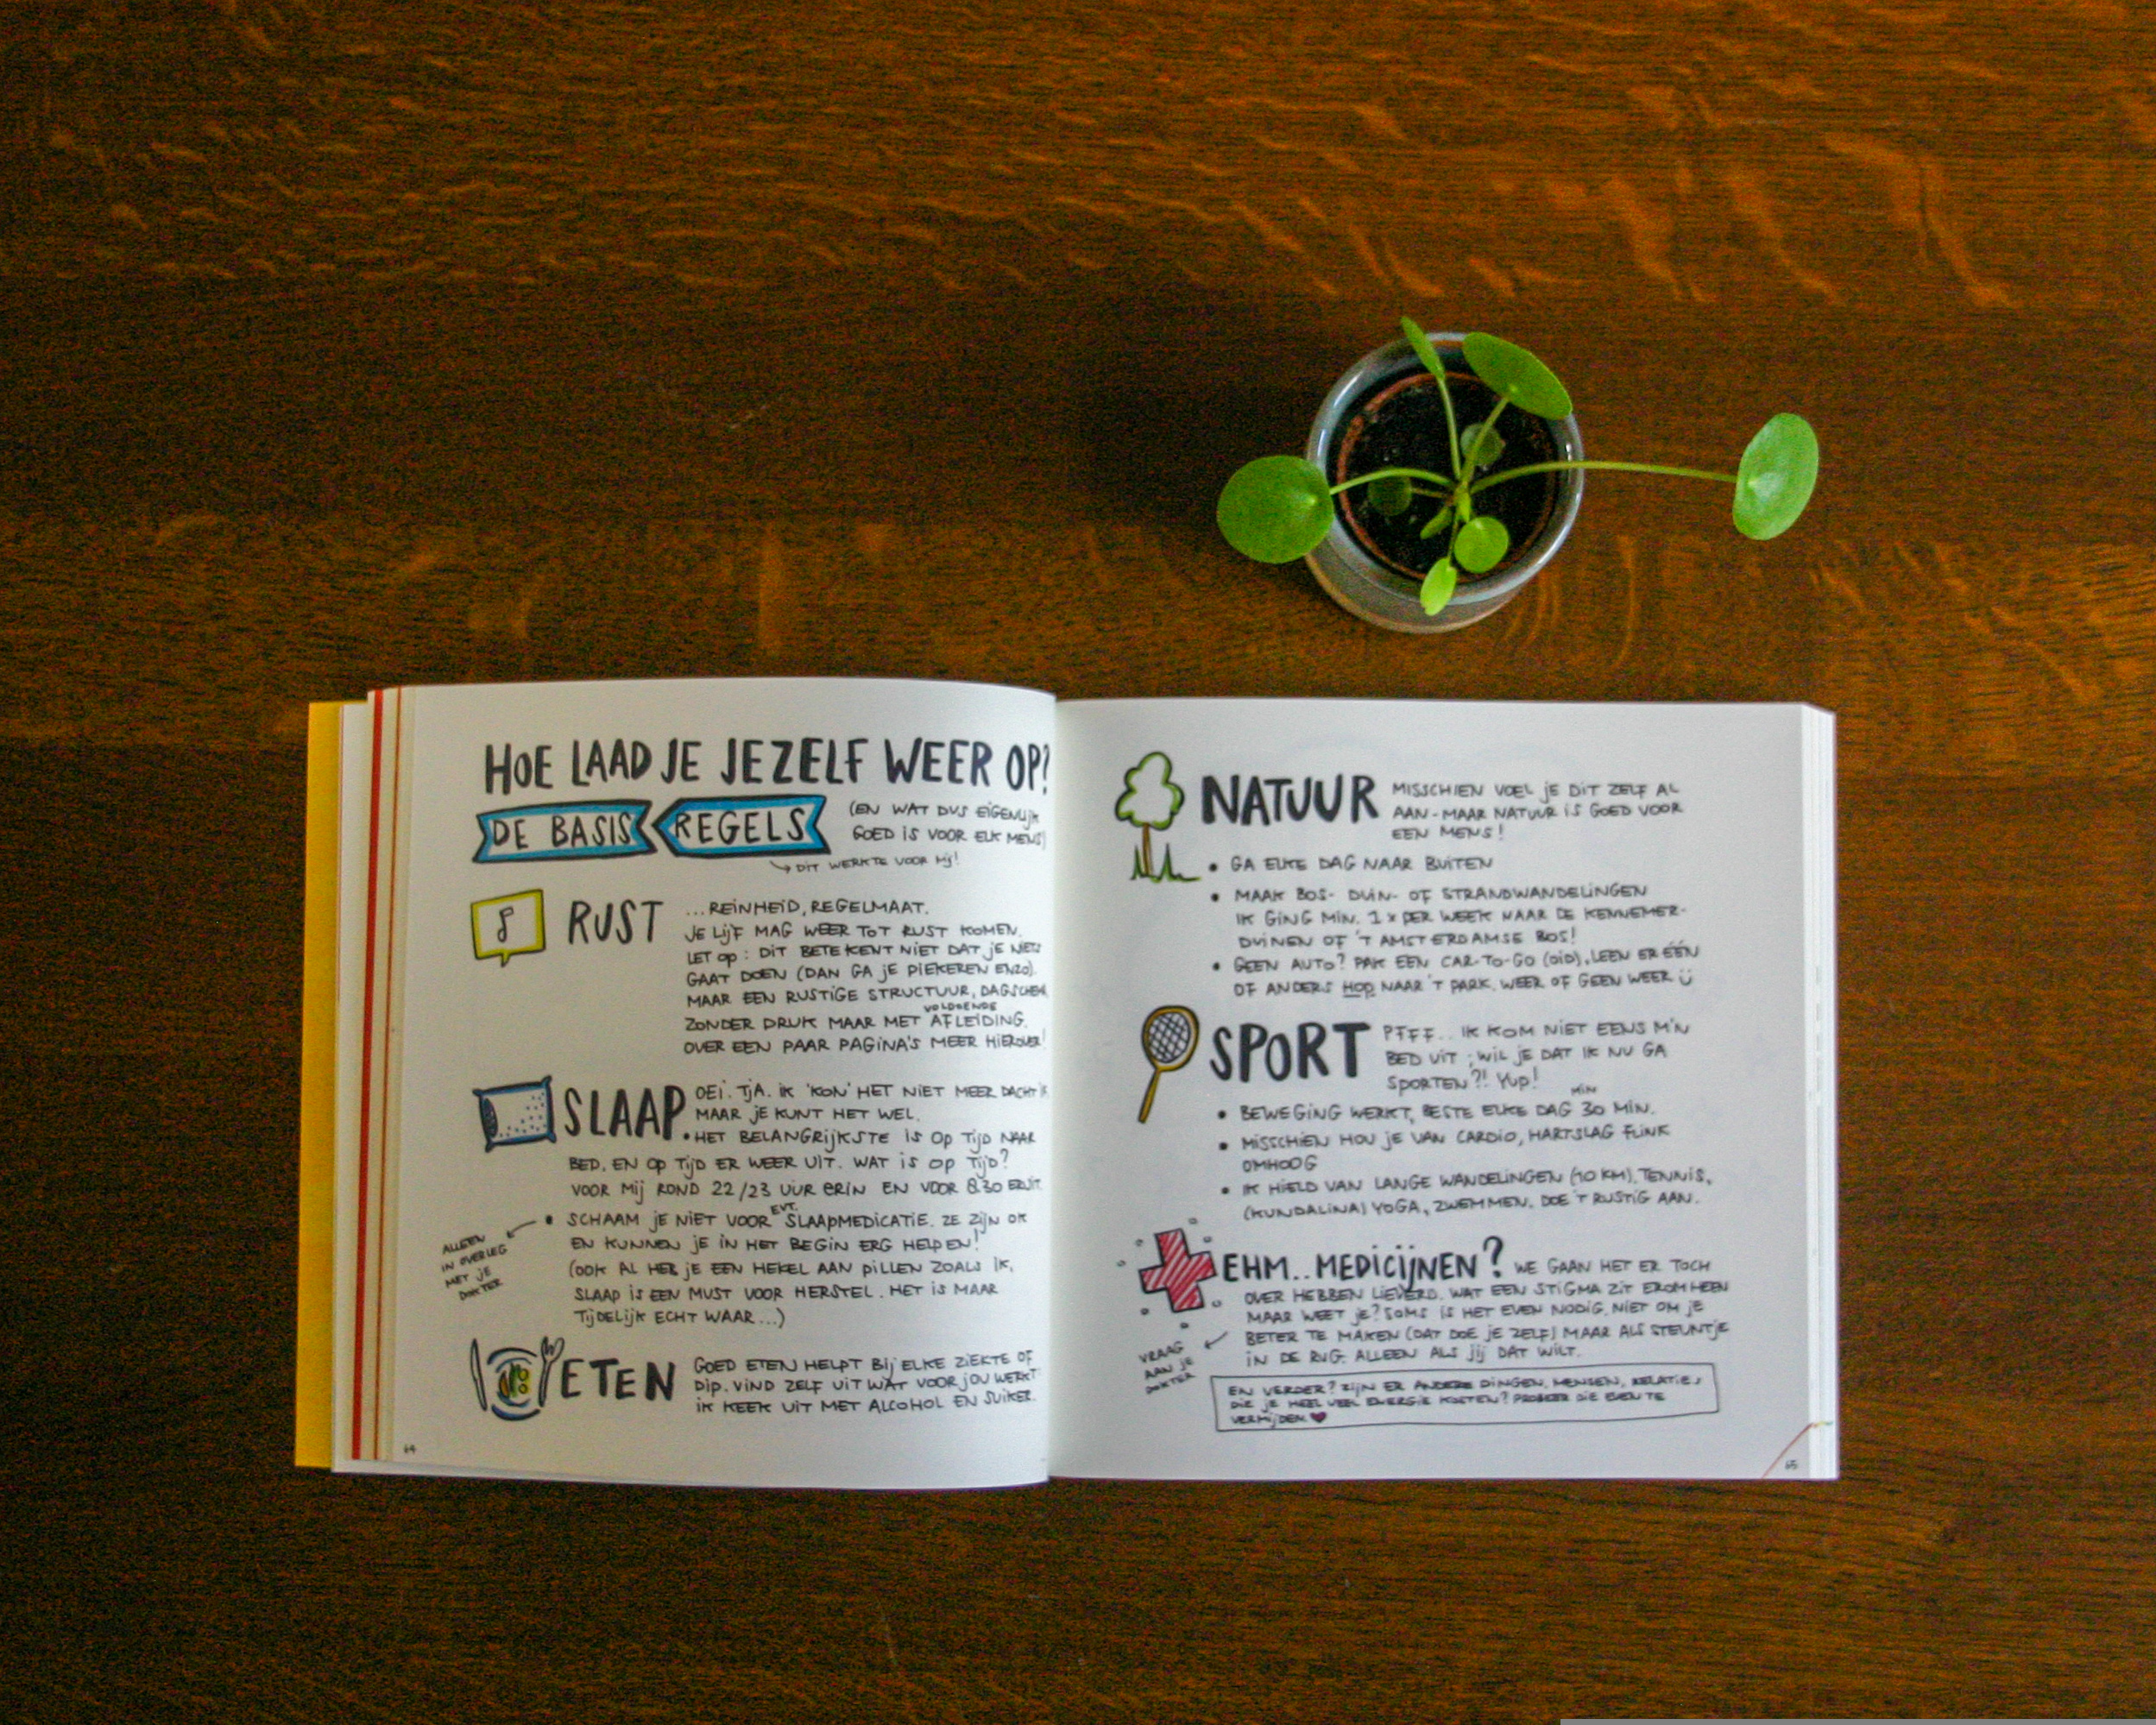 HOE LAAD JE JEZELF WEER OP?
DE BASIS REGELS
(EN WAT DUS EIGENLIJK
GOED IS VOOR ELK MENS)
DIT WERKTE VOOR MIJ!
RUST
...REINHEID, REGELMAAT.
JE LIJF MAG WEER TOT RUST KOMEN.
LET OP: DIT BETEKENT NIET DAT JE NIETS
GAAT DOEN (DAN GA JE PIEKEREN ENZO).
MAAR EEN RUSTIGE STRUCTUUR, DAGSCHEMA
VOLDOENDE
ZONDER DRUK MAAR MET AFLEIDING.
OVER EEN PAAR PAGINA'S MEER HIEROVER!
SLAAP
OEI. TJA. IK 'KON' HET NIET MEER DACHT IK
MAAR JE KUNT HET WEL.
• HET BELANGRIJKSTE IS OP TIJD NAAR
BED. EN OP TIJD ER WEER UIT. WAT IS OP TIJD?
VOOR MIJ ROND 22/23 UUR ERIN EN VOOR 8.30 ERUIT.
EVT.
• SCHAAM JE NIET VOOR SLAAPMEDICATIE. ZE ZIJN OK
EN KUNNEN JE IN HET BEGIN ERG HELPEN!
(OOK AL HEB JE EEN HEKEL AAN PILLEN ZOALS IK,
SLAAP IS EEN MUST VOOR HERSTEL. HET IS MAAR
TIJDELIJK ECHT WAAR...)
ALLEEN
IN OVERLEG
MET JE
DOKTER
ETEN
GOED ETEN HELPT BIJ ELKE ZIEKTE OF
DIP. VIND ZELF UIT WAT VOOR JOU WERKT
IK KEEK UIT MET ALCOHOL EN SUIKER.
64
NATUUR
MISSCHIEN VOEL JE DIT ZELF AL
AAN - MAAR NATUUR IS GOED VOOR
EEN MENS!
• GA ELKE DAG NAAR BUITEN
• MAAK BOS- DUIN- OF STRANDWANDELINGEN
IK GING MIN. 1 x PER WEEK NAAR DE KENNEMER-
DUINEN OF 'T AMSTERDAMSE BOS!
• GEEN AUTO? PAK EEN CAR-TO-GO (OID), LEEN ER ÉÉN
OF ANDERS HOP NAAR 'T PARK. WEER OF GEEN WEER Ü
SPORT
PFFF... IK KOM NIET EENS M'N
BED UIT; WIL JE DAT IK NU GA
SPORTEN?! YUP!
MIN
• BEWEGING WERKT, BESTE ELKE DAG 30 MIN.
• MISSCHIEN HOU JE VAN CARDIO, HARTSLAG FLINK
OMHOOG
• IK HIELD VAN LANGE WANDELINGEN (10 KM), TENNIS,
(KUNDALINA) YOGA, ZWEMMEN. DOE 'T RUSTIG AAN.
EHM.. MEDICIJNEN?
WE GAAN HET ER TOCH
OVER HEBBEN LIEVERD. WAT EEN STIGMA ZIT EROMHEEN
MAAR WEET JE? SOMS IS HET EVEN NODIG. NIET OM JE
BETER TE MAKEN (DAT DOE JE ZELF) MAAR ALS STEUNTJE
IN DE RUG. ALLEEN ALS JIJ DAT WILT.
VRAAG
AAN JE
DOKTER
EN VERDER? ZIJN ER ANDERE DINGEN, MENSEN, RELATIES
DIE JE HEEL VEEL ENERGIE KOSTEN? PROBEER DIE EVEN TE
VERMIJDEN ♥
65